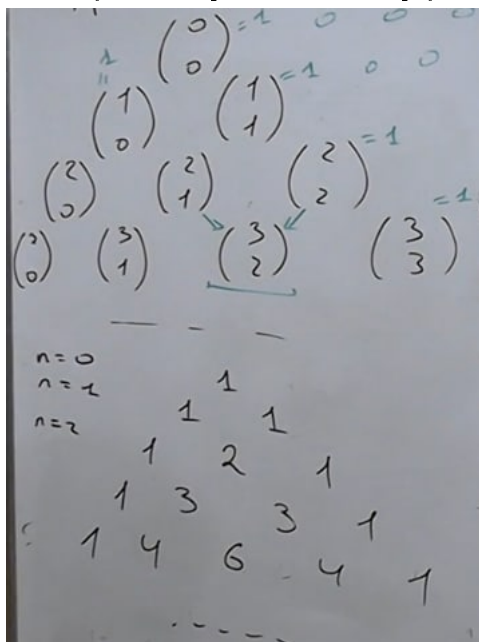 (0 0) = 1 0 0 0
1
=
(1 0) (1 1) = 1 0 0
(2 0) (2 1) (2 2) = 1
(3 0) (3 1) (3 2) (3 3) = 1
n = 0
n = 1
n = 2
1
1 1
1 2 1
1 3 3 1
1 4 6 4 1